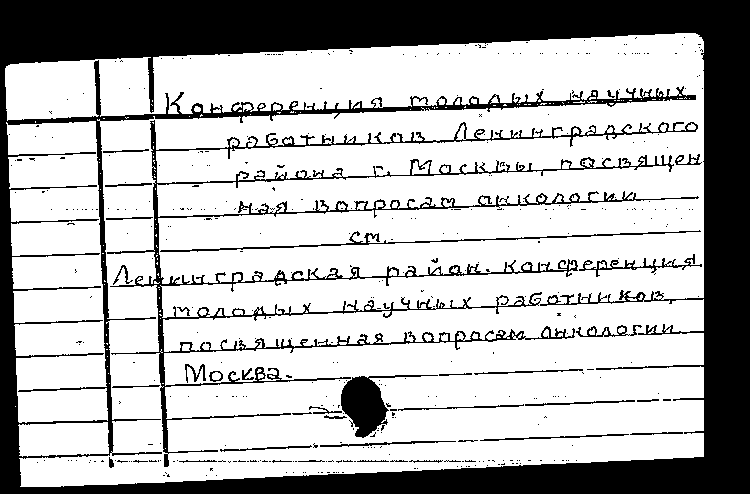 Конференция молодых научных
работников Ленинградского
района г. Москвы, посвящен
ная вопросам онкологии
см.
Ленинградская район. конференция
молодых научных работников,
посвященная вопросам онкологии
Москва.